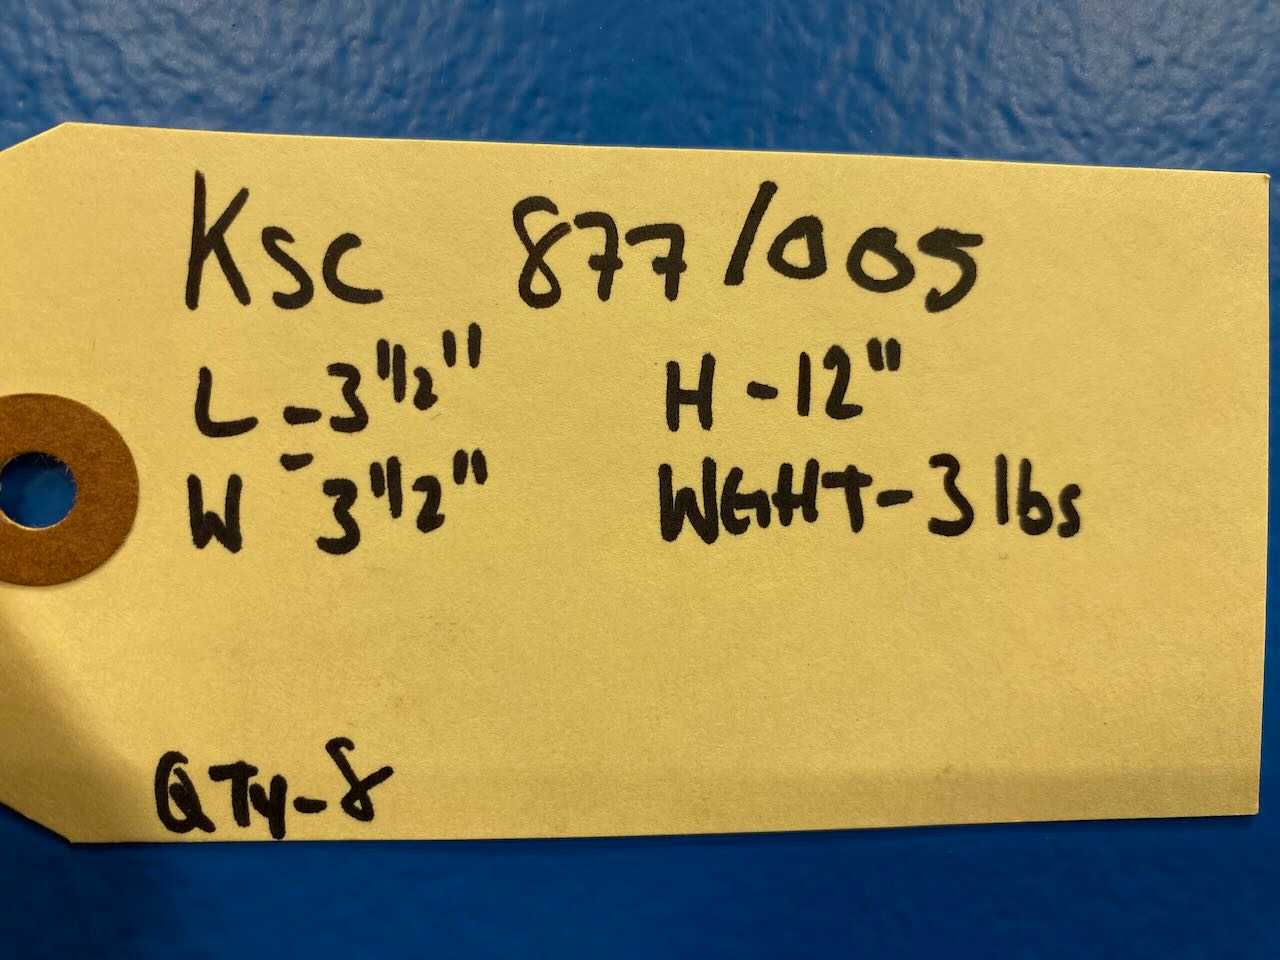 Ksc 877/005
L - 3 1/2" H - 12"
W - 3 1/2" WGHT - 3 lbs
QTy - 8